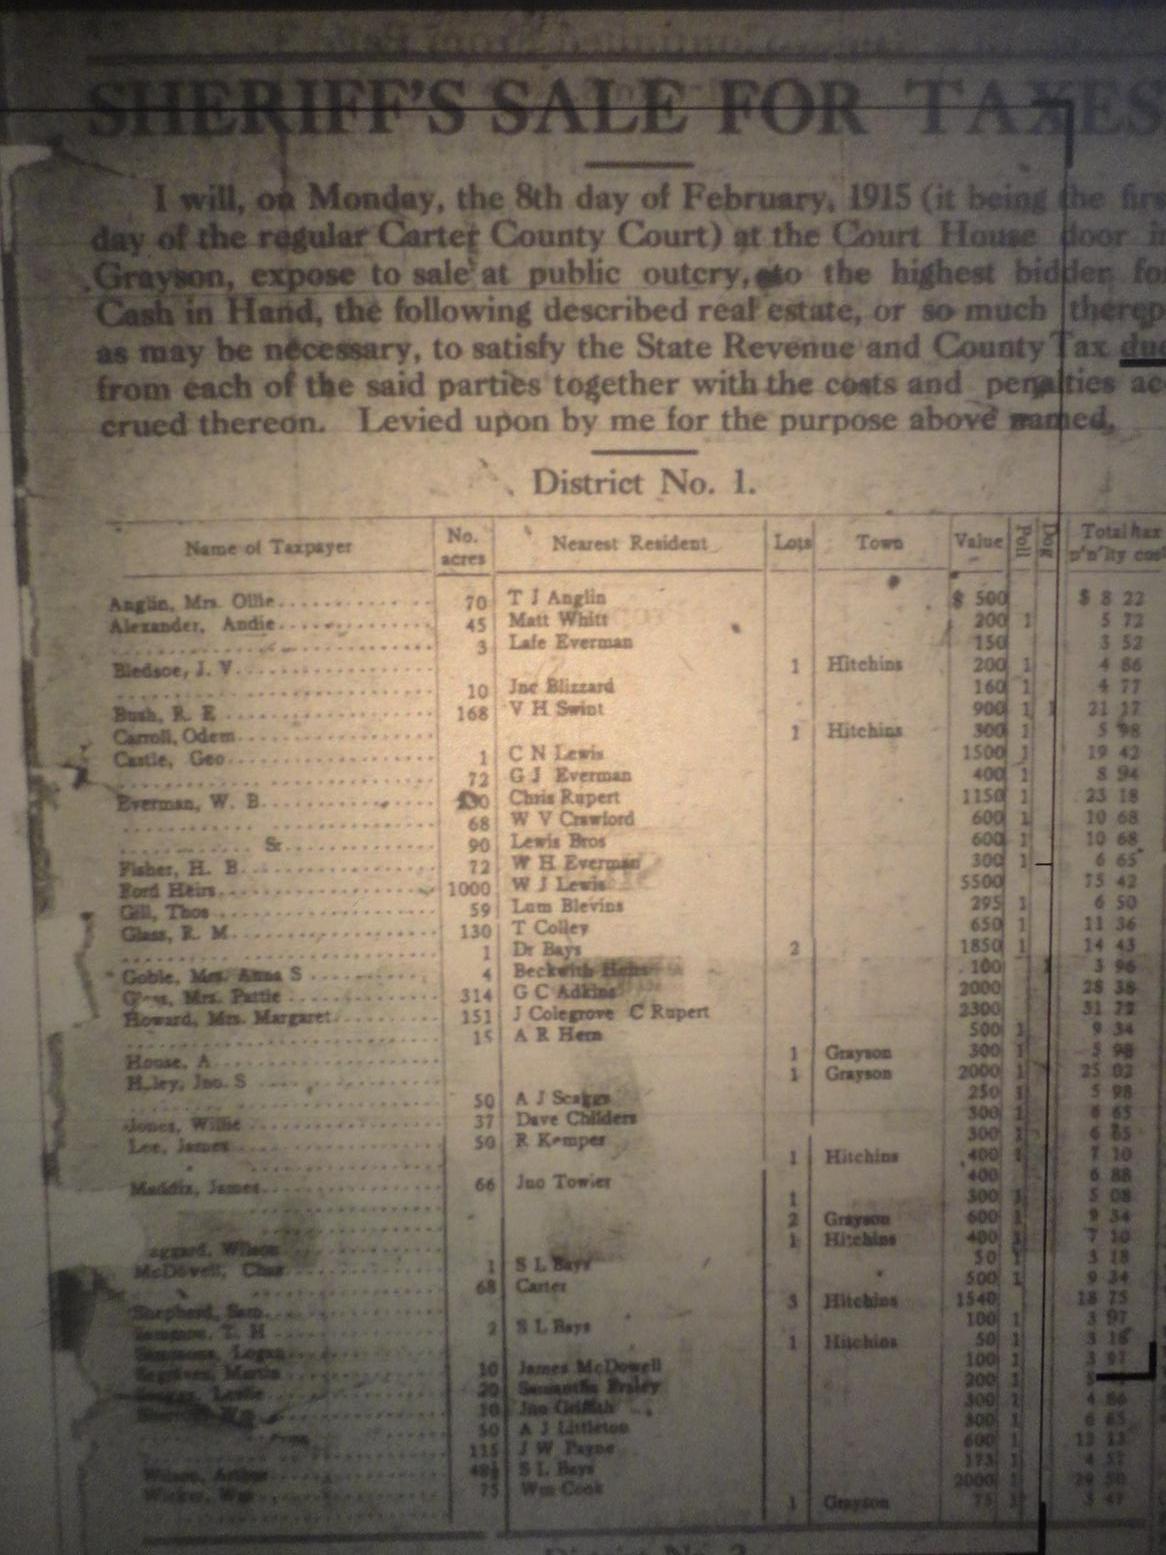 SHERIFF'S SALE FOR TAXES
I will, on Monday, the 8th day of February, 1915 (it being the
day of the regular Carter County Court) at the Court House door
Grayson, expose to sale at public outcry, to the highest bidder
Cash in Hand, the following described real estate, or so much
as may be necessary, to satisfy the State Revenue and County Tax due
from each of the said parties together with the costs and penalties ac
crued thereon. Levied upon by me for the purpose above named.
District No. 1.
Name of Taxpayer No. acres Nearest Resident Lots Town Value Poll Dog Total tax
Anglin, Mrs. Ollie 70 T J Anglin $ 500 $ 8 22
Alexander, Andie 45 Matt Whitt 200 1 5 72
3 Lafe Everman 150 3 52
Bledsoe, J. V. 1 Hitchins 200 1 4 86
10 Jno Blizzard 160 1 4 77
Bush, R. E. 168 V H Swint 900 1 1 21 17
Carroll, Odem 1 Hitchins 300 1 5 98
Castle, Geo 1 C N Lewis 1500 1 19 42
72 G J Everman 400 1 8 94
Everman, W. B. Chris Rupert 1150 1 23 18
68 W V Crawford 600 1 10 68
Sr. 90 Lewis Bros 600 1 10 68
Fisher, H. B. 72 W H Everman 300 1 6 65
Ford Heirs 1000 W J Lewis 5500 75 42
Gill, Thos 59 Lum Blevins 295 1 6 50
Glass, R. M. 130 T Colley 650 1 11 36
1 Dr Bays 2 1850 1 14 43
Goble, Mrs. Anna S 4 Beckwith Heirs 100 1 3 96
Mrs. Pattie 314 G C Adkins 2000 28 38
Howard, Mrs. Margaret 151 J Colegrove C Rupert 2300 31 72
15 A R Hern 500 1 9 34
House, A 1 Grayson 300 1 5 98
Jno. S 1 Grayson 2000 1 25 02
50 A J Scaggs 250 1 5 98
Jones, Willie 37 Dave Childers 300 1 6 65
Lee, James 50 R Kemper 300 1 6 65
1 Hitchins 400 1 7 10
Maddix, James 66 Jno Towler 400 6 88
1 300 1 5 08
2 Grayson 600 1 9 34
Wilson 1 Hitchins 400 1 7 10
McDowell, Chas 1 S L Bays 50 1 3 18
68 Carter 500 1 9 34
Shepherd, Sam 3 Hitchins 1540 18 75
T. H 2 S L Bays 100 1 3 97
Simmons, Logan 1 Hitchins 50 1 3 18
Martin 10 James McDowell 100 1 3 97
Leslie 20 Samantha 200 1
10 Jno Griffith 300 1 4 86
50 A J Littleton 300 1 6 65
115 J W Payne 600 1 13 13
Wilson, Arthur S L Bays 173 1 4 57
75 Wm Cook 2000 1
1 Grayson 75 1 3 47